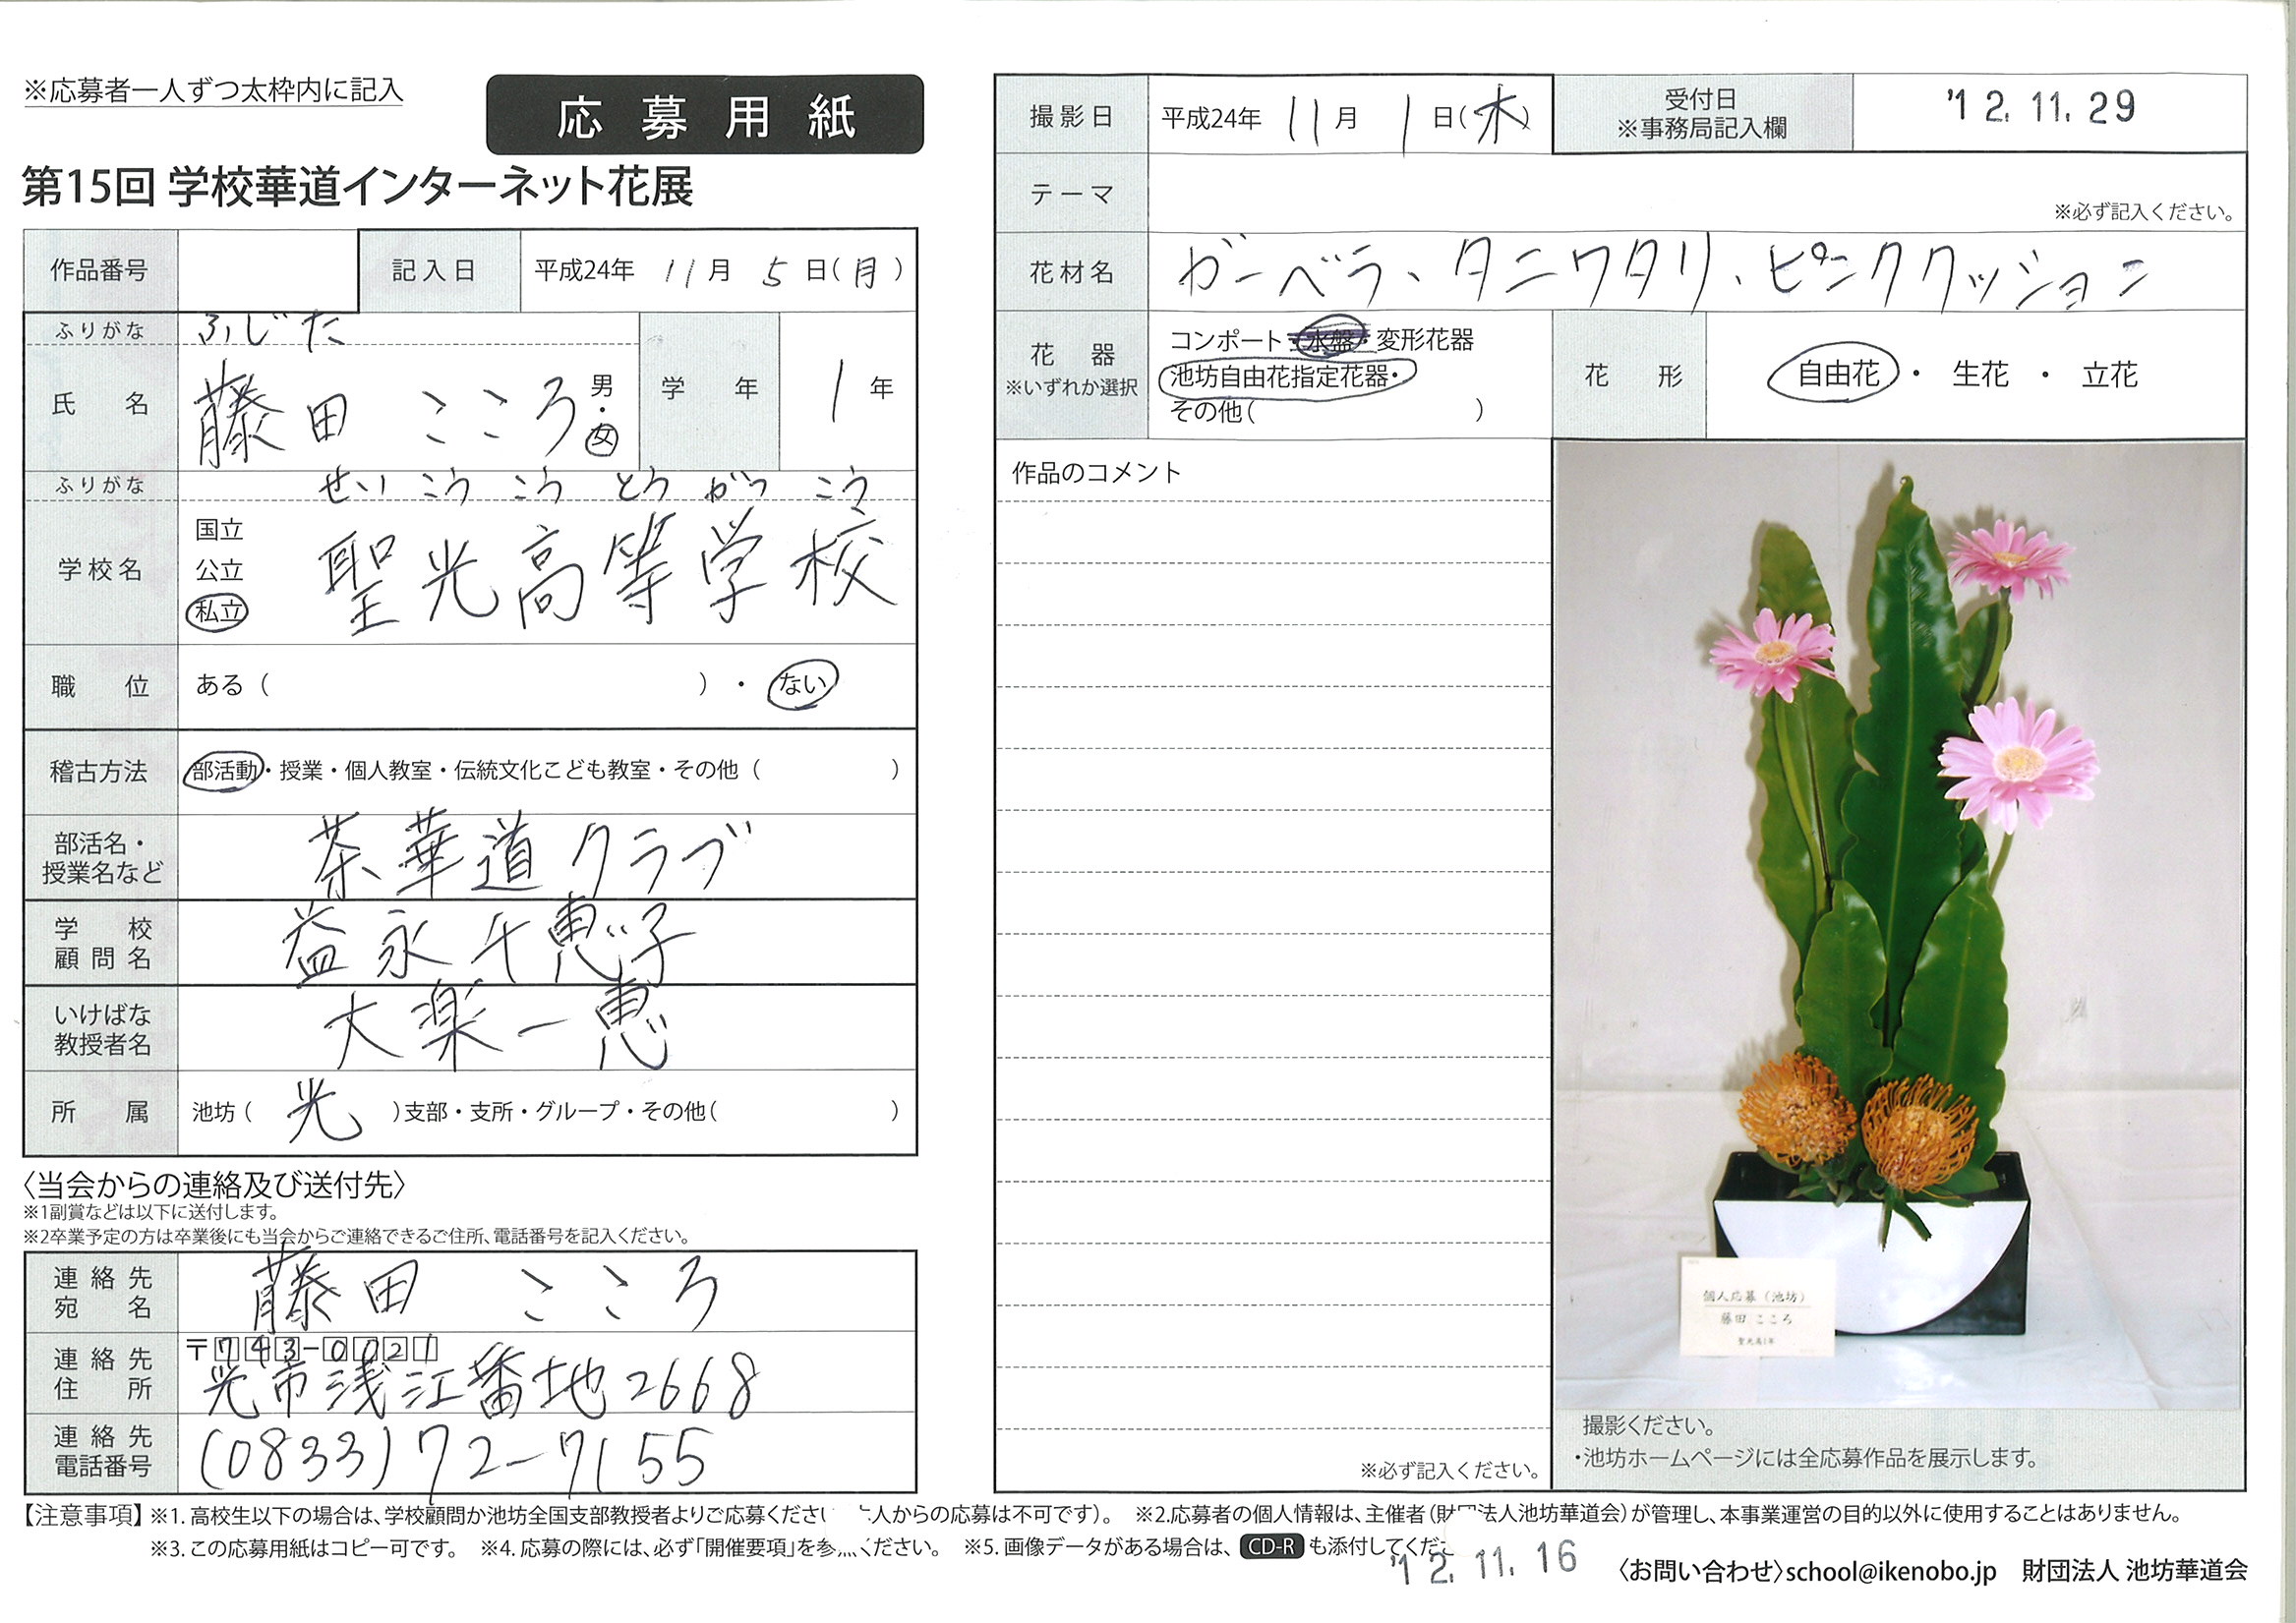 ※応募者一人ずつ太枠内に記入
応募用紙
第15回 学校華道インターネット花展
作品番号 記入日 平成24年 11月 5日(月)
ふりがな ふじた
氏名 藤田 こころ 男・女 学年 1年
ふりがな せいこうこうとうがっこう
学校名 国立 公立 私立 聖光高等学校
職位 ある( )・ない
稽古方法 部活動・授業・個人教室・伝統文化こども教室・その他( )
部活名・授業名など 茶華道クラブ
学校顧問名 益永千恵子
いけばな教授者名 大楽一恵
所属 池坊(光)支部・支所・グループ・その他( )
〈当会からの連絡及び送付先〉
※1副賞などは以下に送付します。
※2卒業予定の方は卒業後にも当会からご連絡できるご住所、電話番号を記入ください。
連絡先宛名 藤田 こころ
連絡先住所 〒743-0021
光市浅江番地2668
連絡先電話番号 (0833)72-7155
撮影日 平成24年 11月 1日(木) 受付日 ※事務局記入欄 '12.11.29
テーマ ※必ず記入ください。
花材名 ガーベラ、タニワタリ、ピンククッション
花器 ※いずれか選択 コンポート・水盤・変形花器
池坊自由花指定花器・
その他( )
花形 自由花・生花・立花
作品のコメント
※必ず記入ください。
個人応募(池坊)
藤田 こころ
聖光高1年
撮影ください。
・池坊ホームページには全応募作品を展示します。
【注意事項】※1.高校生以下の場合は、学校顧問か池坊全国支部教授者よりご応募ください 人からの応募は不可です)。 ※2.応募者の個人情報は、主催者(財団法人池坊華道会)が管理し、本事業運営の目的以外に使用することはありません。
※3.この応募用紙はコピー可です。 ※4.応募の際には、必ず「開催要項」を参 ください。 ※5.画像データがある場合は、CD-Rも添付してくだ
'12.11.16
〈お問い合わせ〉school@ikenobo.jp 財団法人 池坊華道会